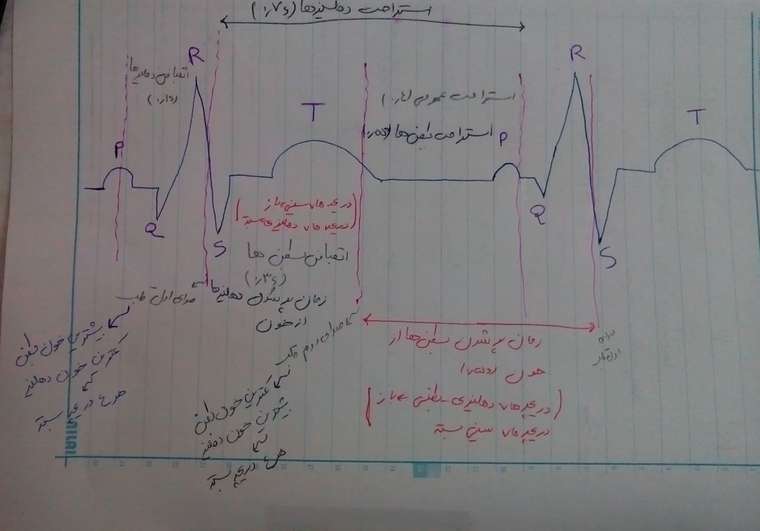 استراحت دهلیزها (۰/۷s)
R
R
انقباض دهلیزها
(۰/۱s)
استراحت عمومی (۰/۴s)
استراحت بطن ها (۰/۵s)
T
T
P
P
Q
Q
S
S
(دریچه های سینی باز
دریچه های دهلیزی بسته)
انقباض بطن ها
(۰/۳s)
زمان پر شدن دهلیزها
از خون
صدای اول قلب
بیشترین خون بطن
کمترین خون دهلیز
هر ۴ دریچه بسته
صدای دوم قلب
کمترین خون بطن
بیشترین خون دهلیز
هر ۴ دریچه بسته
زمان پر شدن بطن ها از
خون
(دریچه های دهلیزی بطنی باز
دریچه های سینی بسته)
صدای
اول قلب